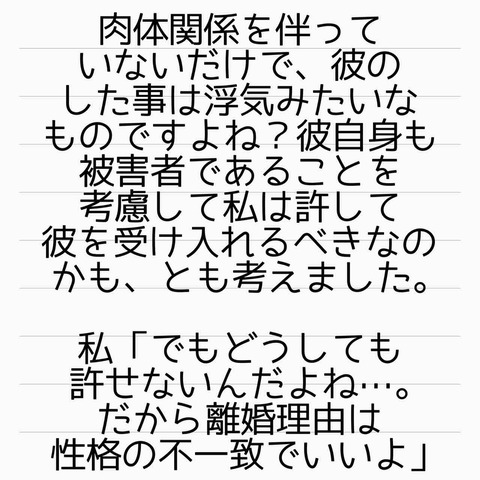 肉体関係を伴って
いないだけで、彼の
した事は浮気みたいな
ものですよね？彼自身も
被害者であることを
考慮して私は許して
彼を受け入れるべきなの
かも、とも考えました。
私「でもどうしても
許せないんだよね…。
だから離婚理由は
性格の不一致でいいよ」